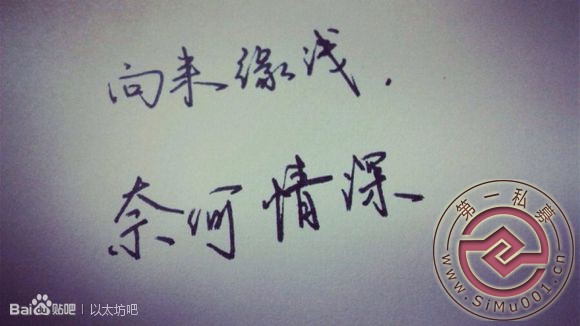 向来缘浅.
奈何情深
第一私募
www.SiMu001.cn
Bai贴吧 | 以太坊吧